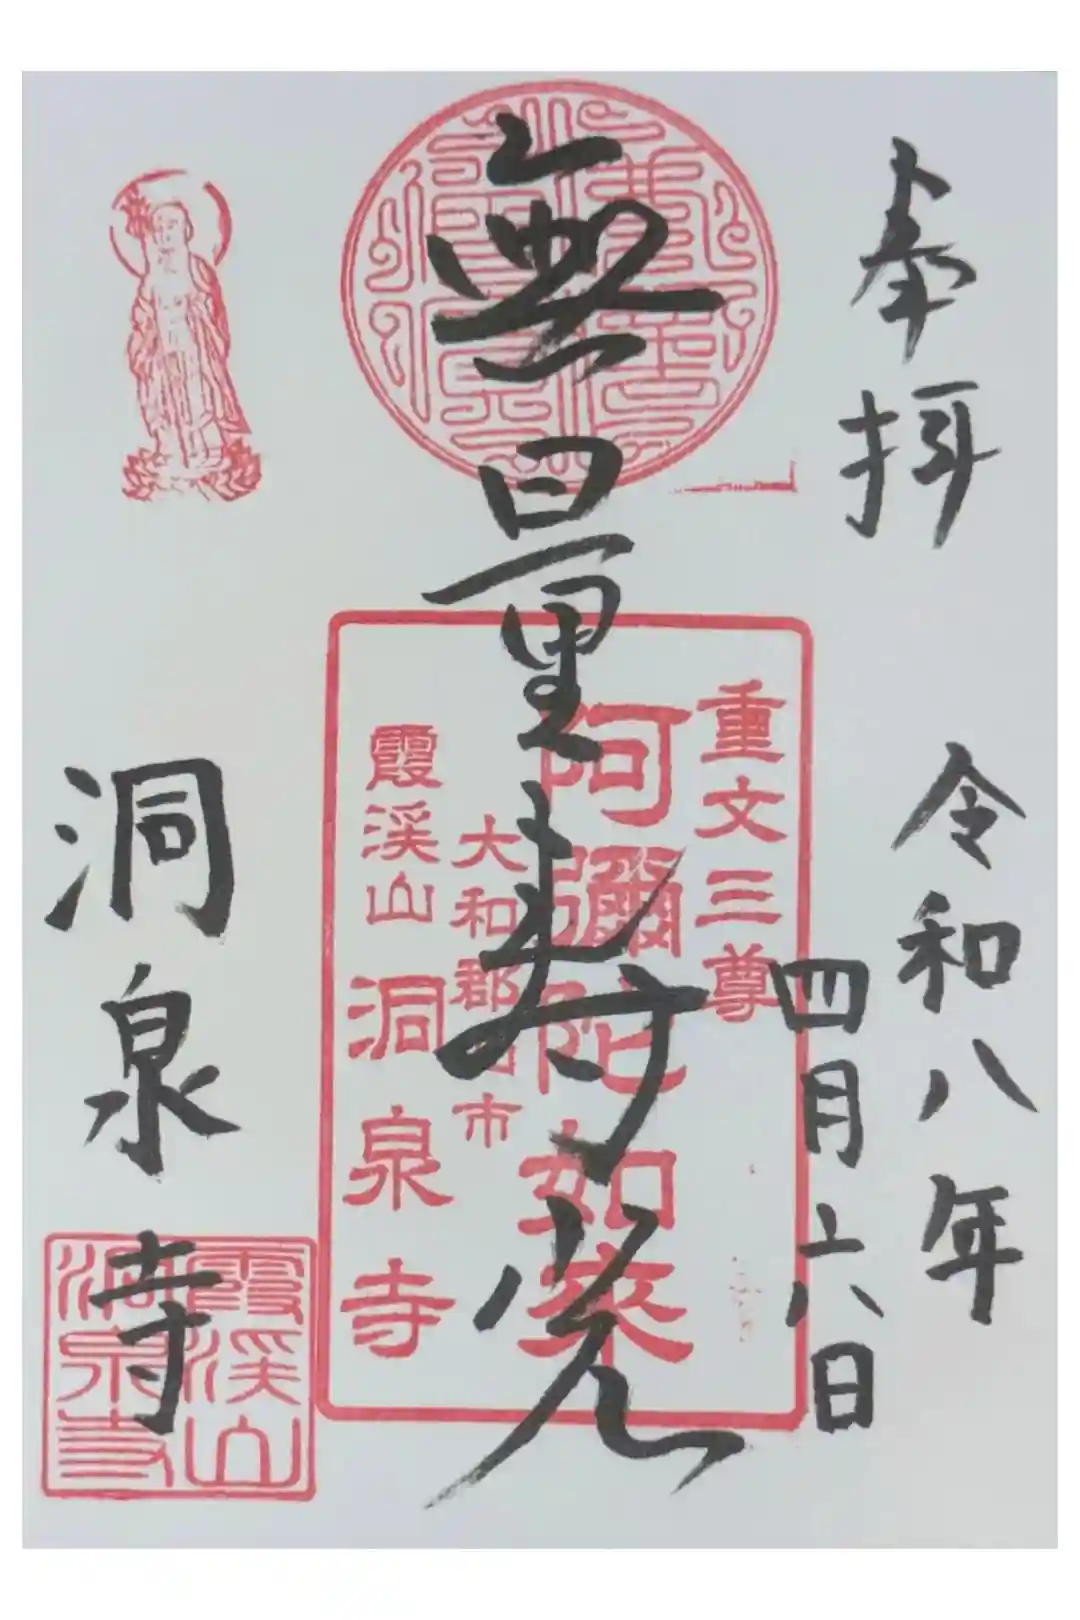 奉拝
令和八年
四月六日
無量寿光
重文三尊
阿彌陀如来
大和郡山市
霞渓山 洞泉寺
洞泉寺
霞渓山
洞泉寺